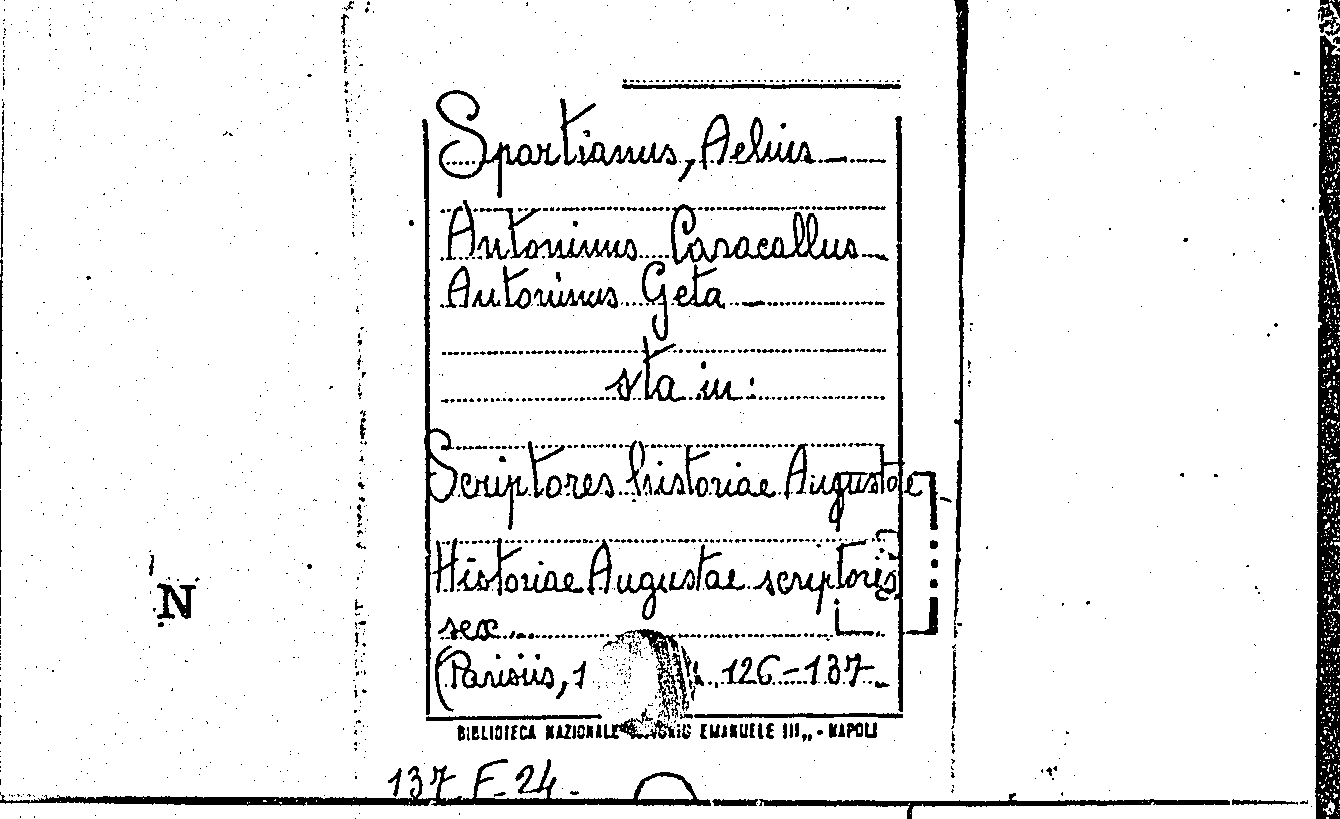 Spartianus, Aelius
Antoninus Caracallus
Antoninus Geta
sta in:
Scriptores historiae Augustae
Historiae Augustae scriptores
sex ...
(Parisiis, 1 126-137
N
BIBLIOTECA NAZIONALE EMANUELE III,, - NAPOLI
137 F 24.